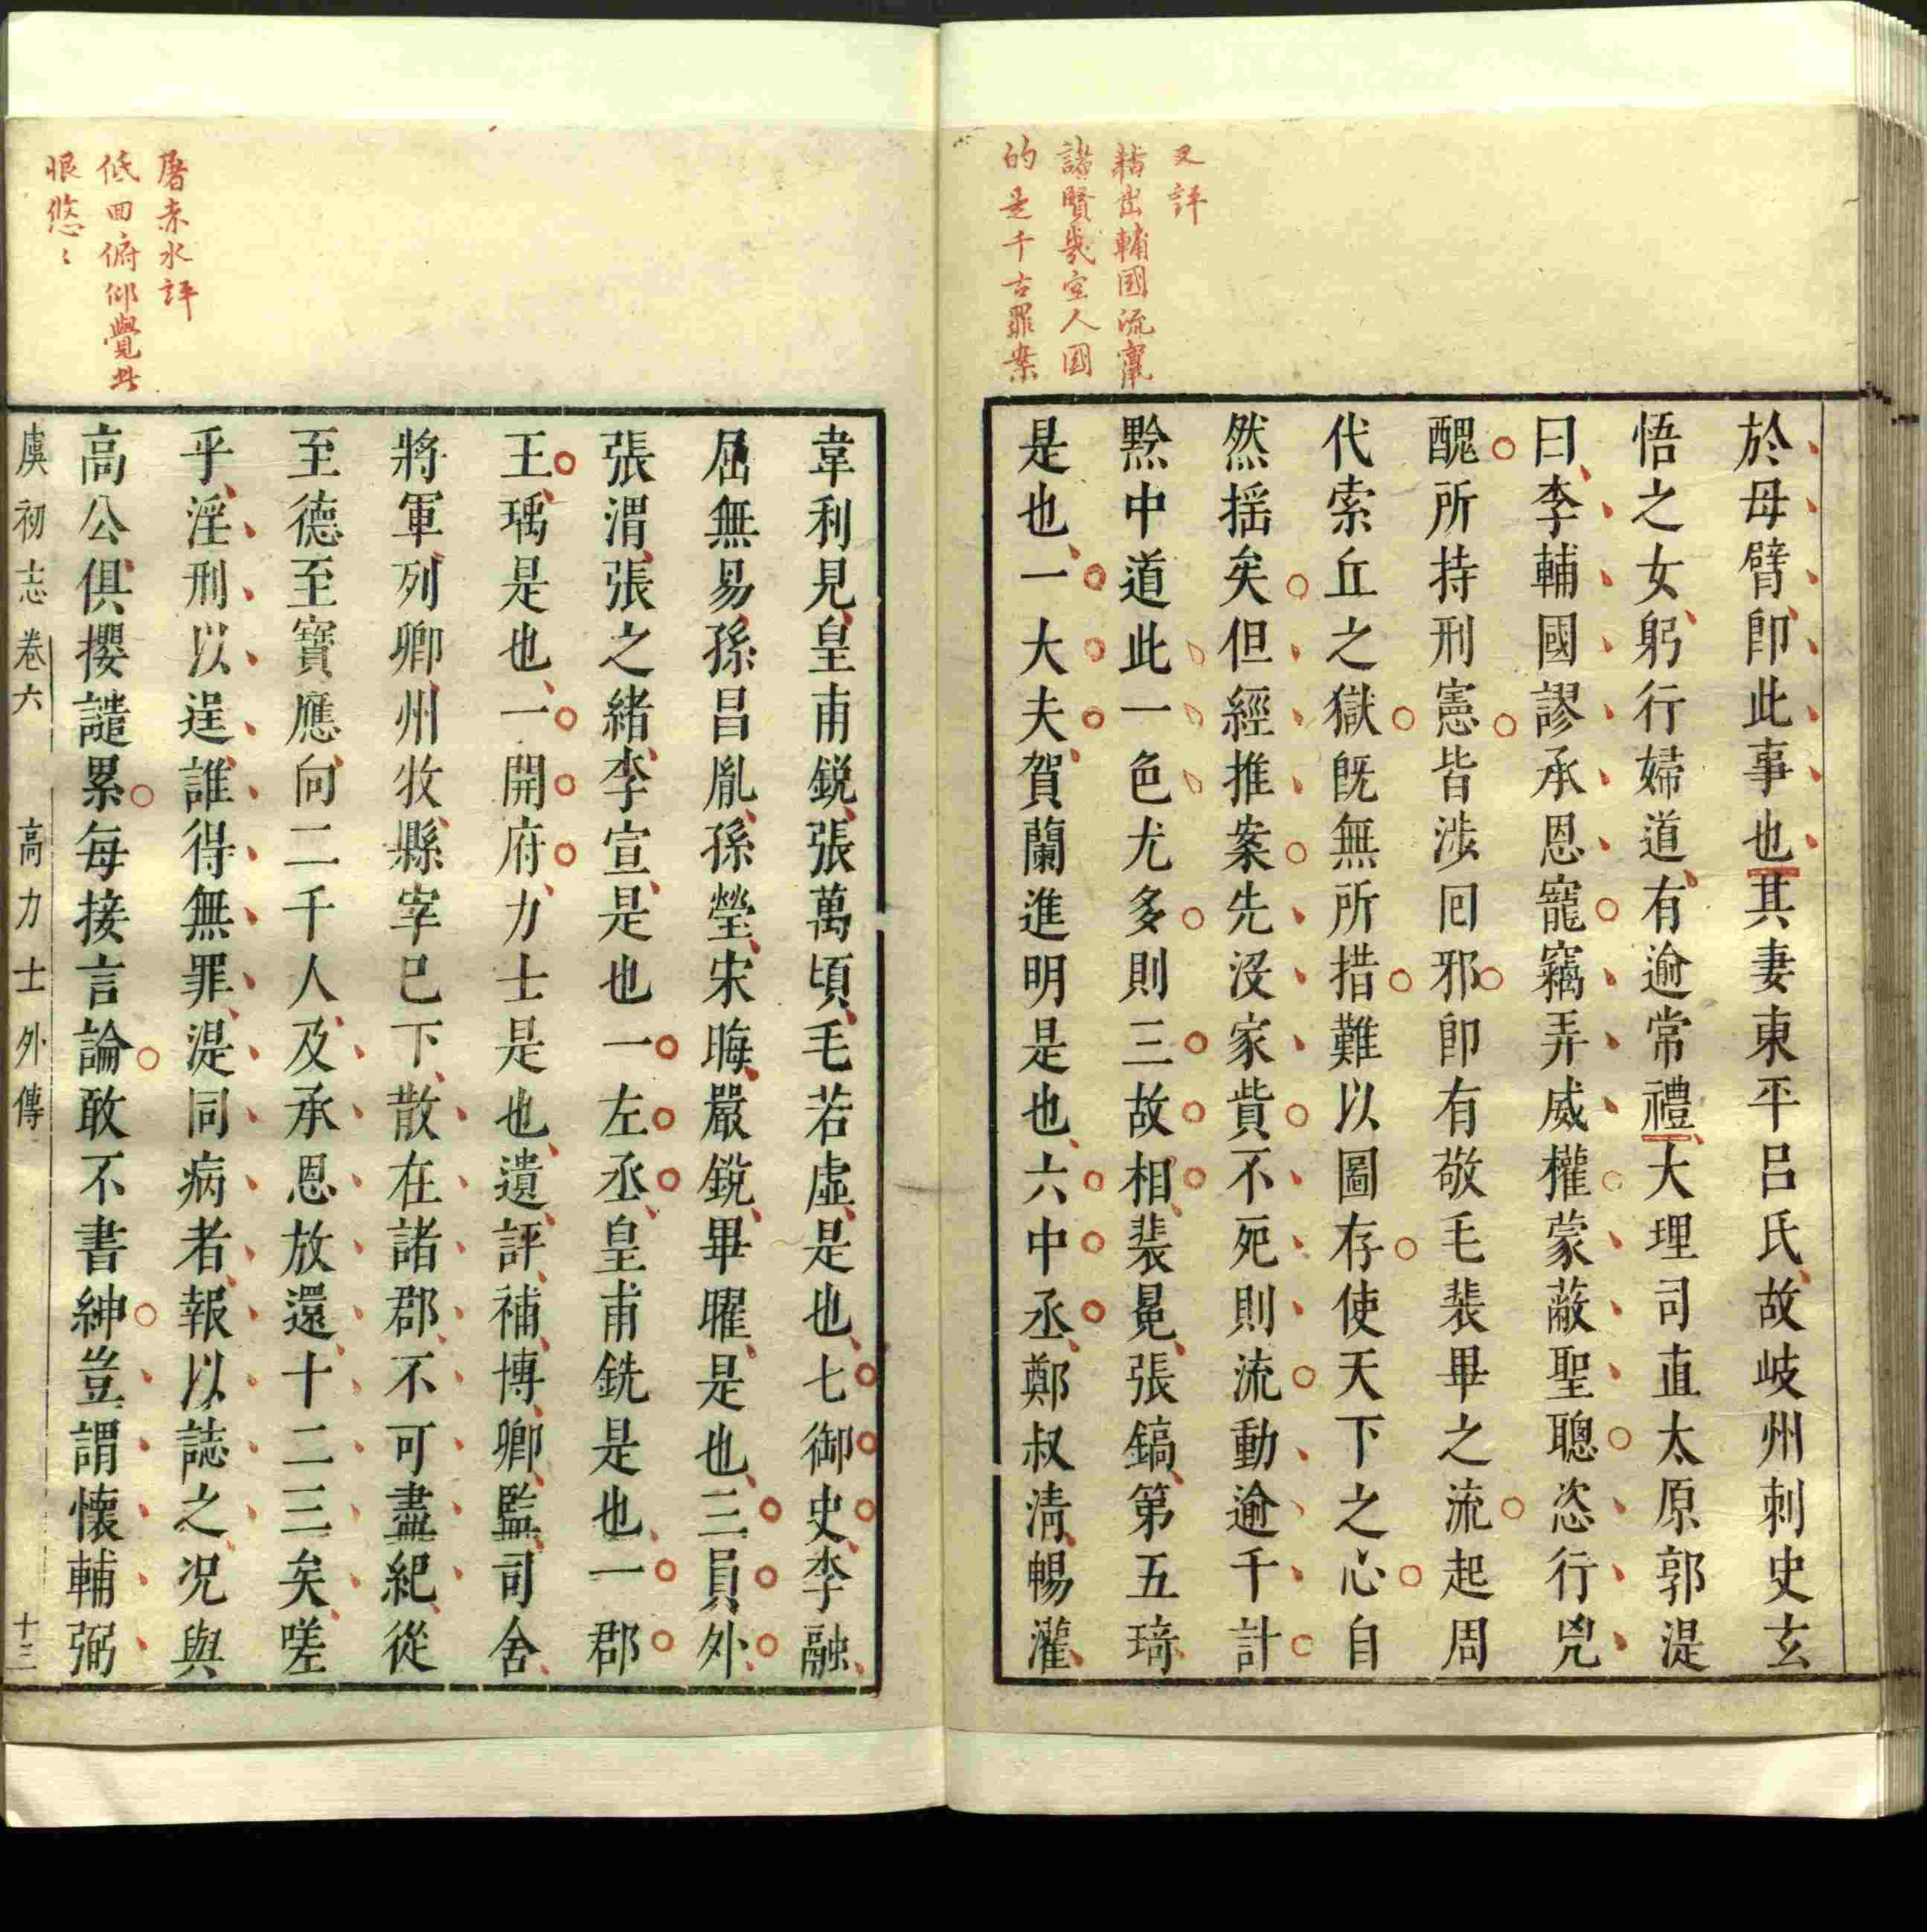 又評
結出輔國流竄
諸賢幾空人國
的是千古罪案
於母臂卽此事也其妻東平呂氏故岐州刺史玄
悟之女躬行婦道有逾常禮大理司直太原郭湜
曰李輔國謬承恩寵竊弄威權蒙蔽聖聰恣行兇
醜所持刑憲皆涉囘邪卽有敬毛裴畢之流起周
代索丘之獄旣無所措難以圖存使天下之心自
然揺矣但經推案先沒家貲不死則流動逾千計
黔中道此一色尤多則三故相裴冕張鎬第五琦
是也一大夫賀蘭進明是也六中丞鄭叔清暢灌
韋利見皇甫銳張萬頃毛若虛是也七御史李融
屈無易孫昌胤孫瑩宋晦嚴銳畢曜是也三員外
張渭張之緒李宣是也一左丞皇甫銑是也一郡
王瑀是也一開府力士是也遺評補博卿監司舍
將軍列卿州牧縣宰已下散在諸郡不可盡紀從
至德至寶應向二千人及承恩放還十二三矣嗟
乎淫刑以逞誰得無罪湜同病者報以誌之況與
高公俱攖譴累每接言論敢不書紳豈謂懷輔弼
屠赤水評
低回俯仰覺此
恨悠〻
虞初志卷六 高力士外傳 十三